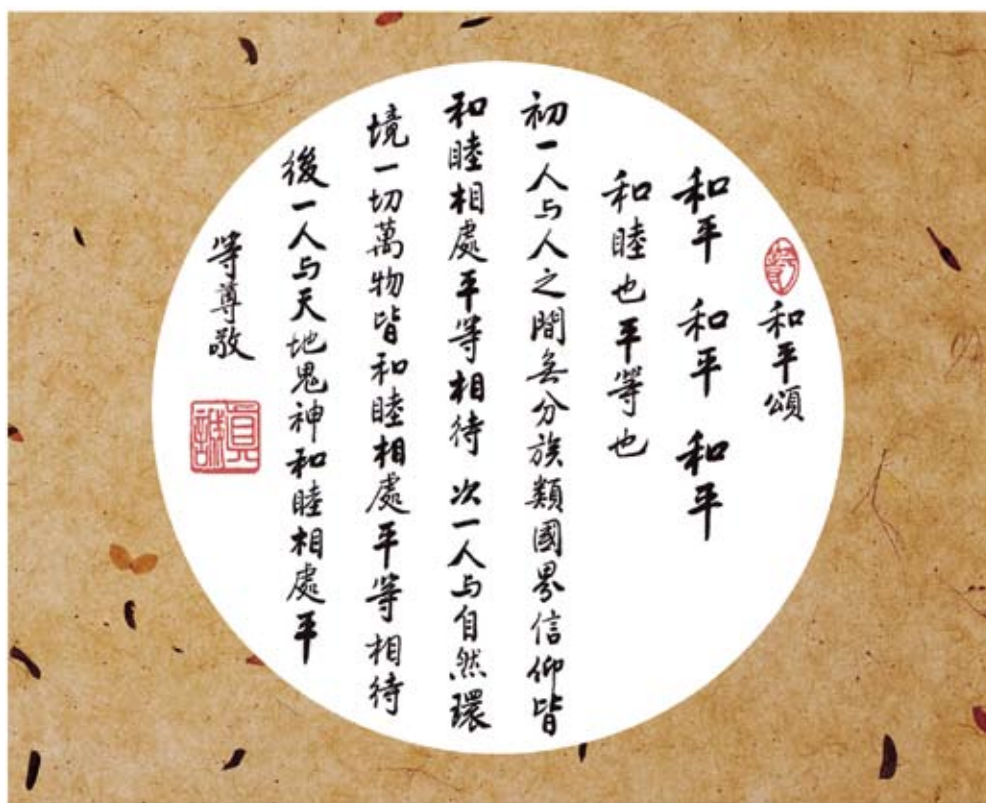 和平頌
和平 和平 和平
和睦也平等也
初一人与人之間無分族類國界信仰皆
和睦相處平等相待 次一人与自然環
境一切萬物皆和睦相處平等相待
後一人与天地鬼神和睦相處平
等尊敬